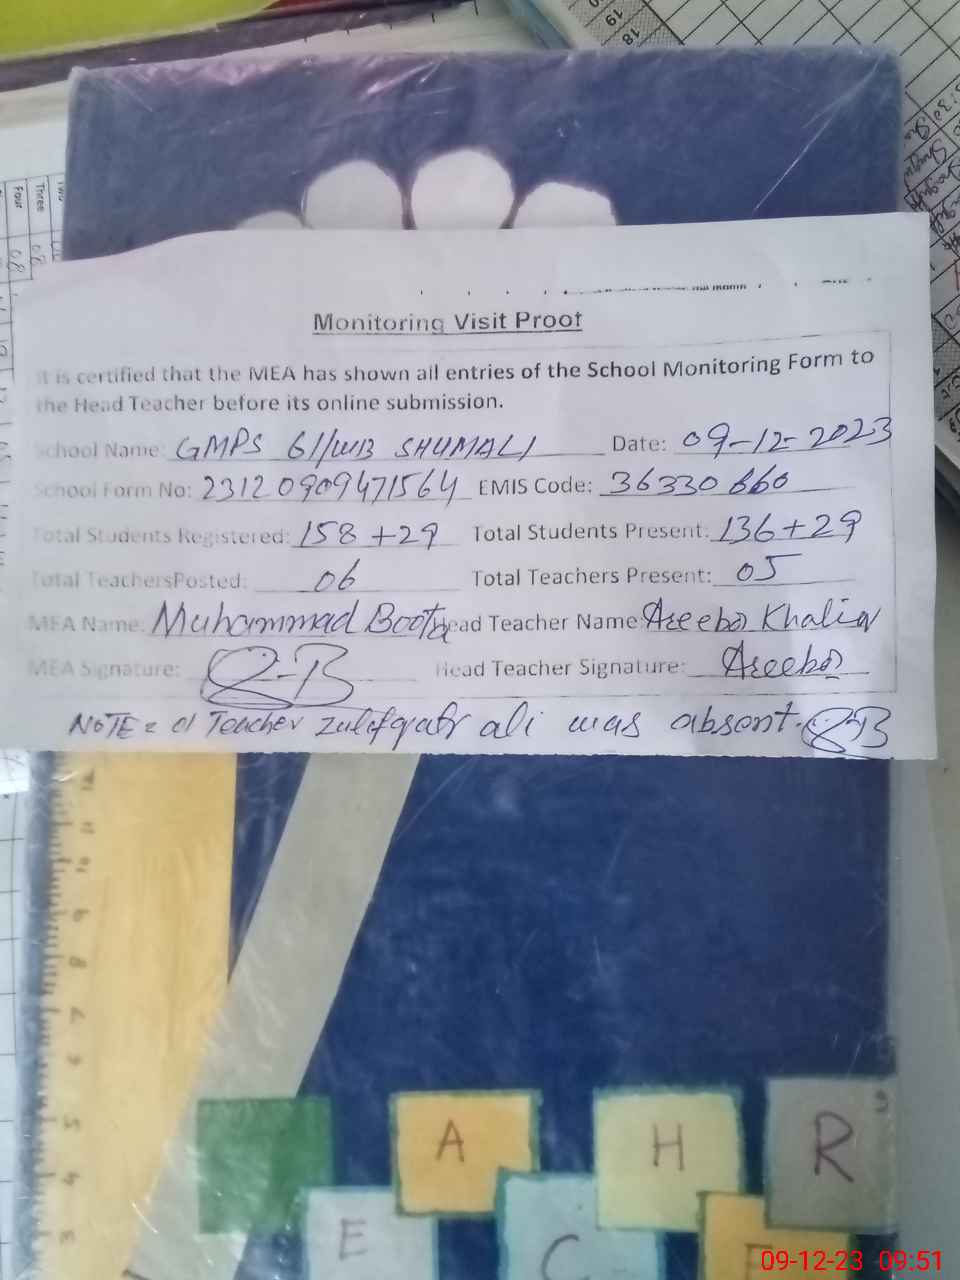 19
18
Four
Three
08
08
Monitoring Visit Proof
It is certified that the MEA has shown all entries of the School Monitoring Form to
the Head Teacher before its online submission.
School Name: GMPS 61/WB SHUMALI Date: 09-12-2023
School Form No: 23120909471564 EMIS Code: 36330660
Total Students Registered: 158+29 Total Students Present: 136+29
Total TeachersPosted: 06 Total Teachers Present: 05
MEA Name: Muhammad Boota Head Teacher Name: Azeeba
MEA Signature: Head Teacher Signature: Azeeba
NOTE = 01 Teacher zulifqar ali was absent.
9
8
5
4
3
A H R
E C
09-12-23 09:51